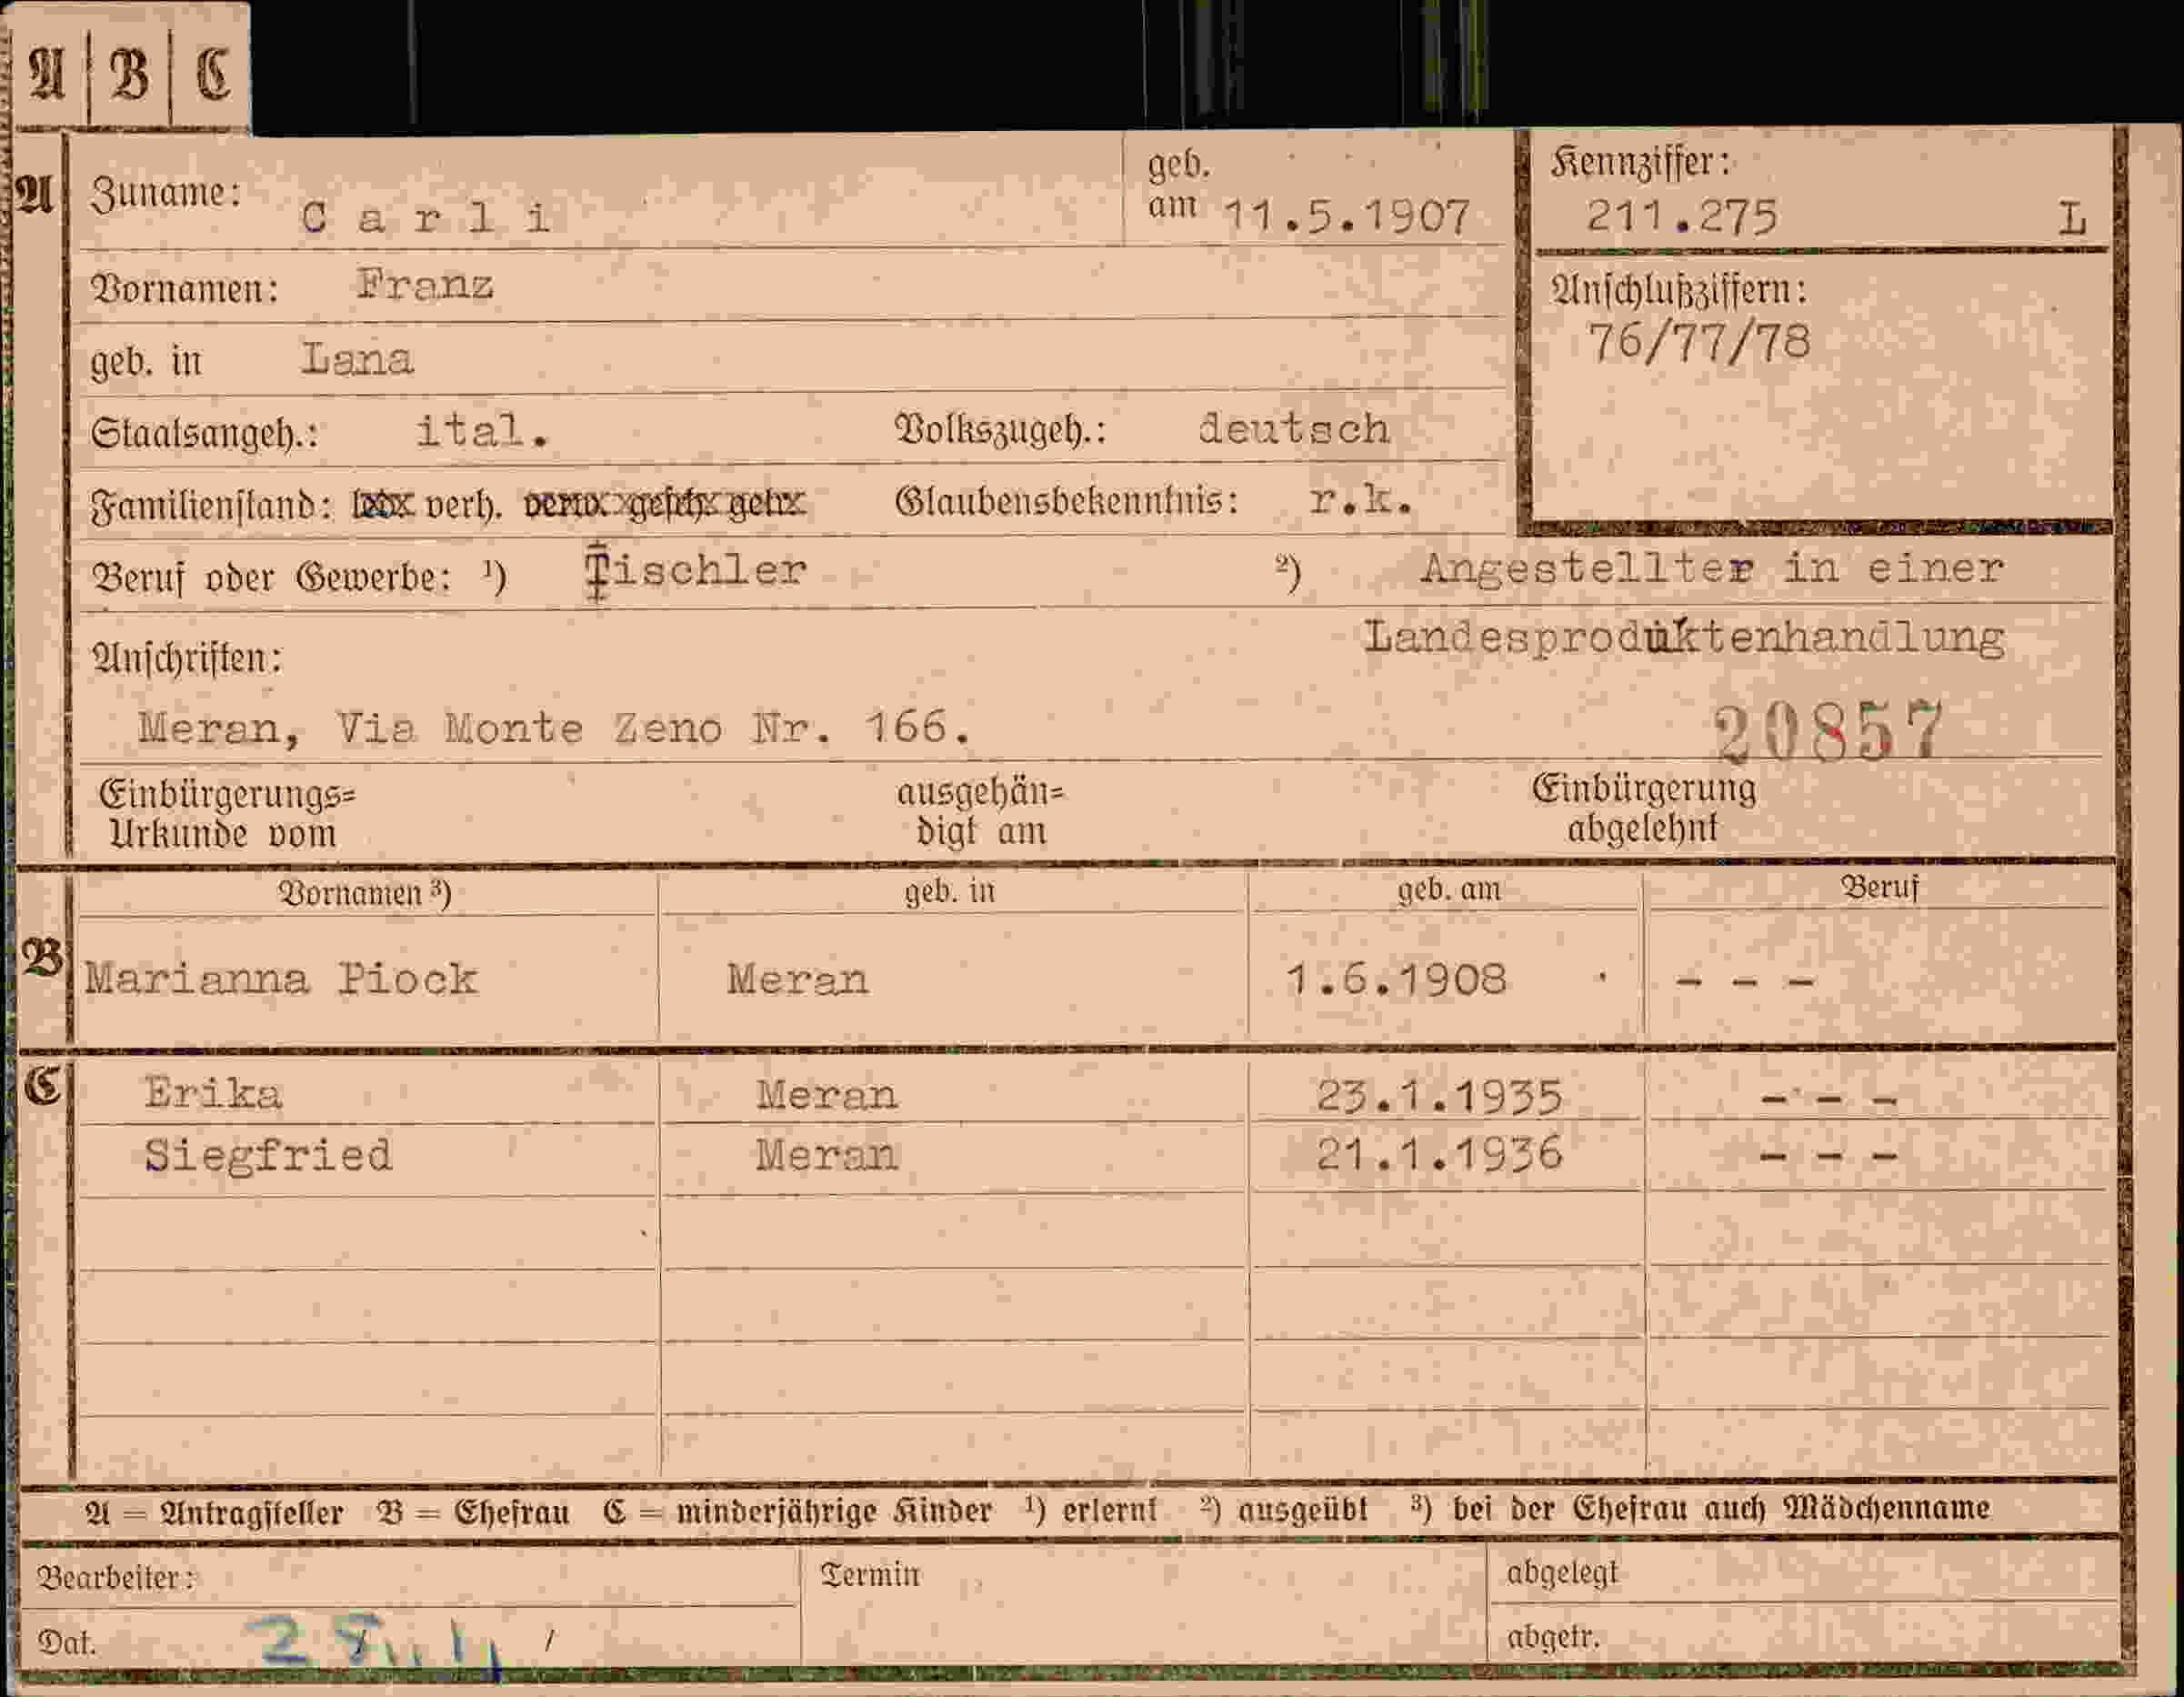 A | B | C
A Zuname: Carli geb. am 11.5.1907 Kennziffer: 211.275 L
Vornamen: Franz Anschlußziffern: 76/77/78
geb. in Lana
Staatsangeh.: ital. Volkszugeh.: deutsch
Familienstand: verh. Glaubensbekenntnis: r.k.
Beruf oder Gewerbe: ¹) Tischler ²) Angestellter in einer
Landesproduktenhandlung
Anschriften:
Meran, Via Monte Zeno Nr. 166. 20857
Einbürgerungs= ausgehän= Einbürgerung
Urkunde vom digt am abgelehnt
Vornamen ³) geb. in geb. am Beruf
B Marianna Piock Meran 1.6.1908 - - -
C Erika Meran 23.1.1935 - - -
Siegfried Meran 21.1.1936 - - -
A = Antragsteller B = Ehefrau C = minderjährige Kinder ¹) erlernt ²) ausgeübt ³) bei der Ehefrau auch Mädchenname
Bearbeiter: Termin abgelegt
Dat. abgetr.